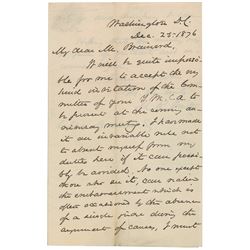 Washington D.C.
Dec. 23. 1876
My dear Mr. Brainerd,
It will be quite impossi-
ble for me to accept the
kind invitation of the Com-
mittee of your Y.M.C.A to
be present at the
meeting. I have made
it an invariable rule not
to absent myself from my
duties here if it can possi-
bly be avoided. No one except
those who sit, can realize
the embarrassment which is
often occasioned by the absence
of a single one during the
argument of causes. I must